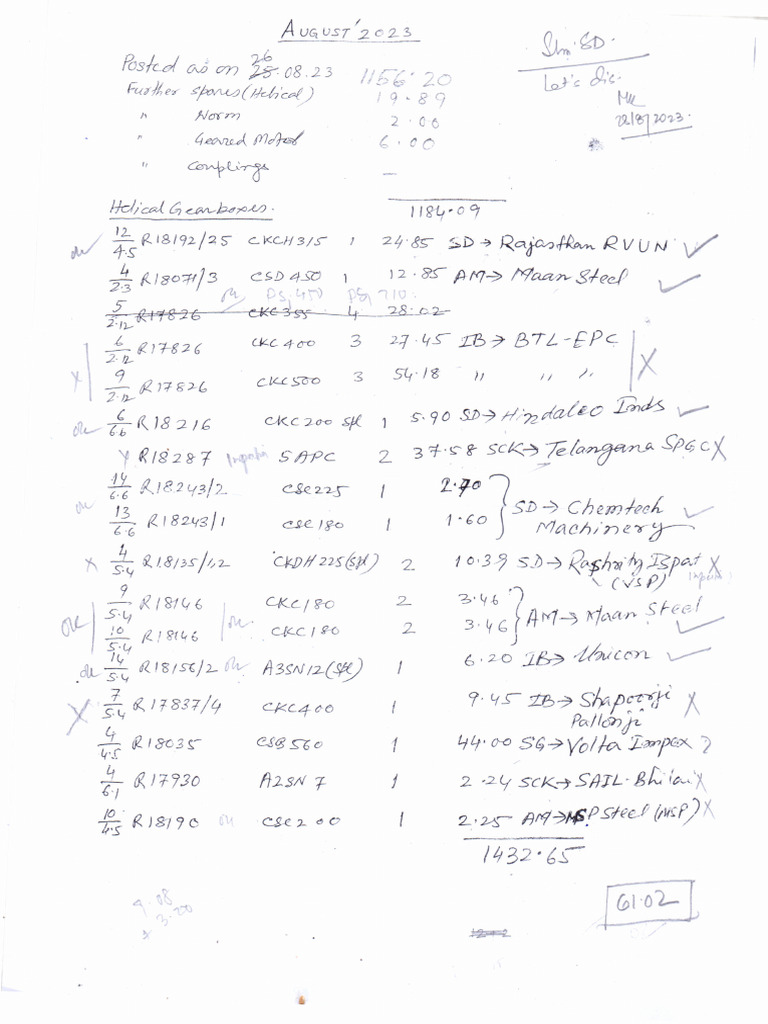 AUGUST'2023
Posted as on 26.08.23 1156.20
Further spares (Helical) 19.89
" Norm 2.00
" Geared Motor 6.00
" Couplings –
1184.09
Shri SD.
Let's dis.
22/8/2023.
Helical Gearboxes.
ok 12/4.5 R18192/25 CKCH315 1 24.85 SD → Rajasthan RVUN ✓
4/2.3 R18071/3 CSD450 1 12.85 AM → Maan Steel ✓
5/2.12 R17826 CKC355 4 28.02
X 6/2.12 R17826 CKC400 3 27.45 IB → BTL-EPC X
9/2.12 R17826 CKC500 3 54.18 " " "
ok 6/6.6 R18216 CKC200 Spl 1 5.90 SD → Hindalco Inds ✓
X R18287 SAPC 2 37.58 SCK → Telangana SPGC X
14/6.6 R18243/2 CSC225 1 2.70
ok SD → Chemtech Machinery ✓
13/6.6 R18243/1 CSC180 1 1.60
X 4/5.4 R18135/1,2 CKDH225(Spl) 2 10.39 SD → Rashtriy Ispat X
(VSP)
9/5.4 R18146 CKC180 2 3.46
OK ok AM → Maan Steel ✓
10/5.4 R18146 CKC180 2 3.46
ok 14/5.4 R18156/2 ok A3SN12(Spl) 1 6.20 IB → Unicon ✓
X 7/5.4 R17837/4 CKC400 1 9.45 IB → Shapoorji X
Pallonji
4/4.5 R18035 CSB560 1 44.00 SG → Volta Impex ?
4/6.1 R17930 A2SN7 1 2.24 SCK → SAIL-Bhilai X
10/4.5 R18190 ok CSC200 1 2.25 AM → MSP Steel (MSP) X
1432.65
61.02
9.08
3.20